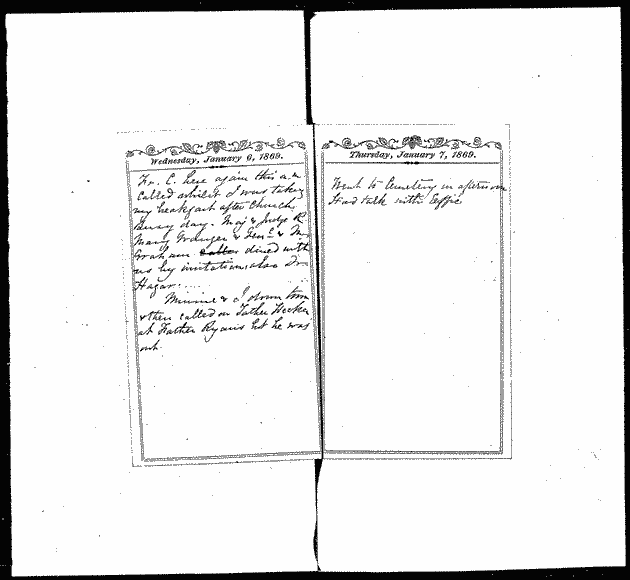 Wednesday, January 6, 1869.
Fr. C. here again this a.m
Called whilst I was taking
my breakfast after Church.
Busy day. Maj & Judge R
Mary Granger & Genl & M
Graham called dined with
us by invitation, also Dr
Hagar....
Minnie & I down town
& then called on Father Hecker
at Father Ryan's but he was
out
Thursday, January 7, 1869.
Went to Cemetery in afternoon
Had talk with Effie